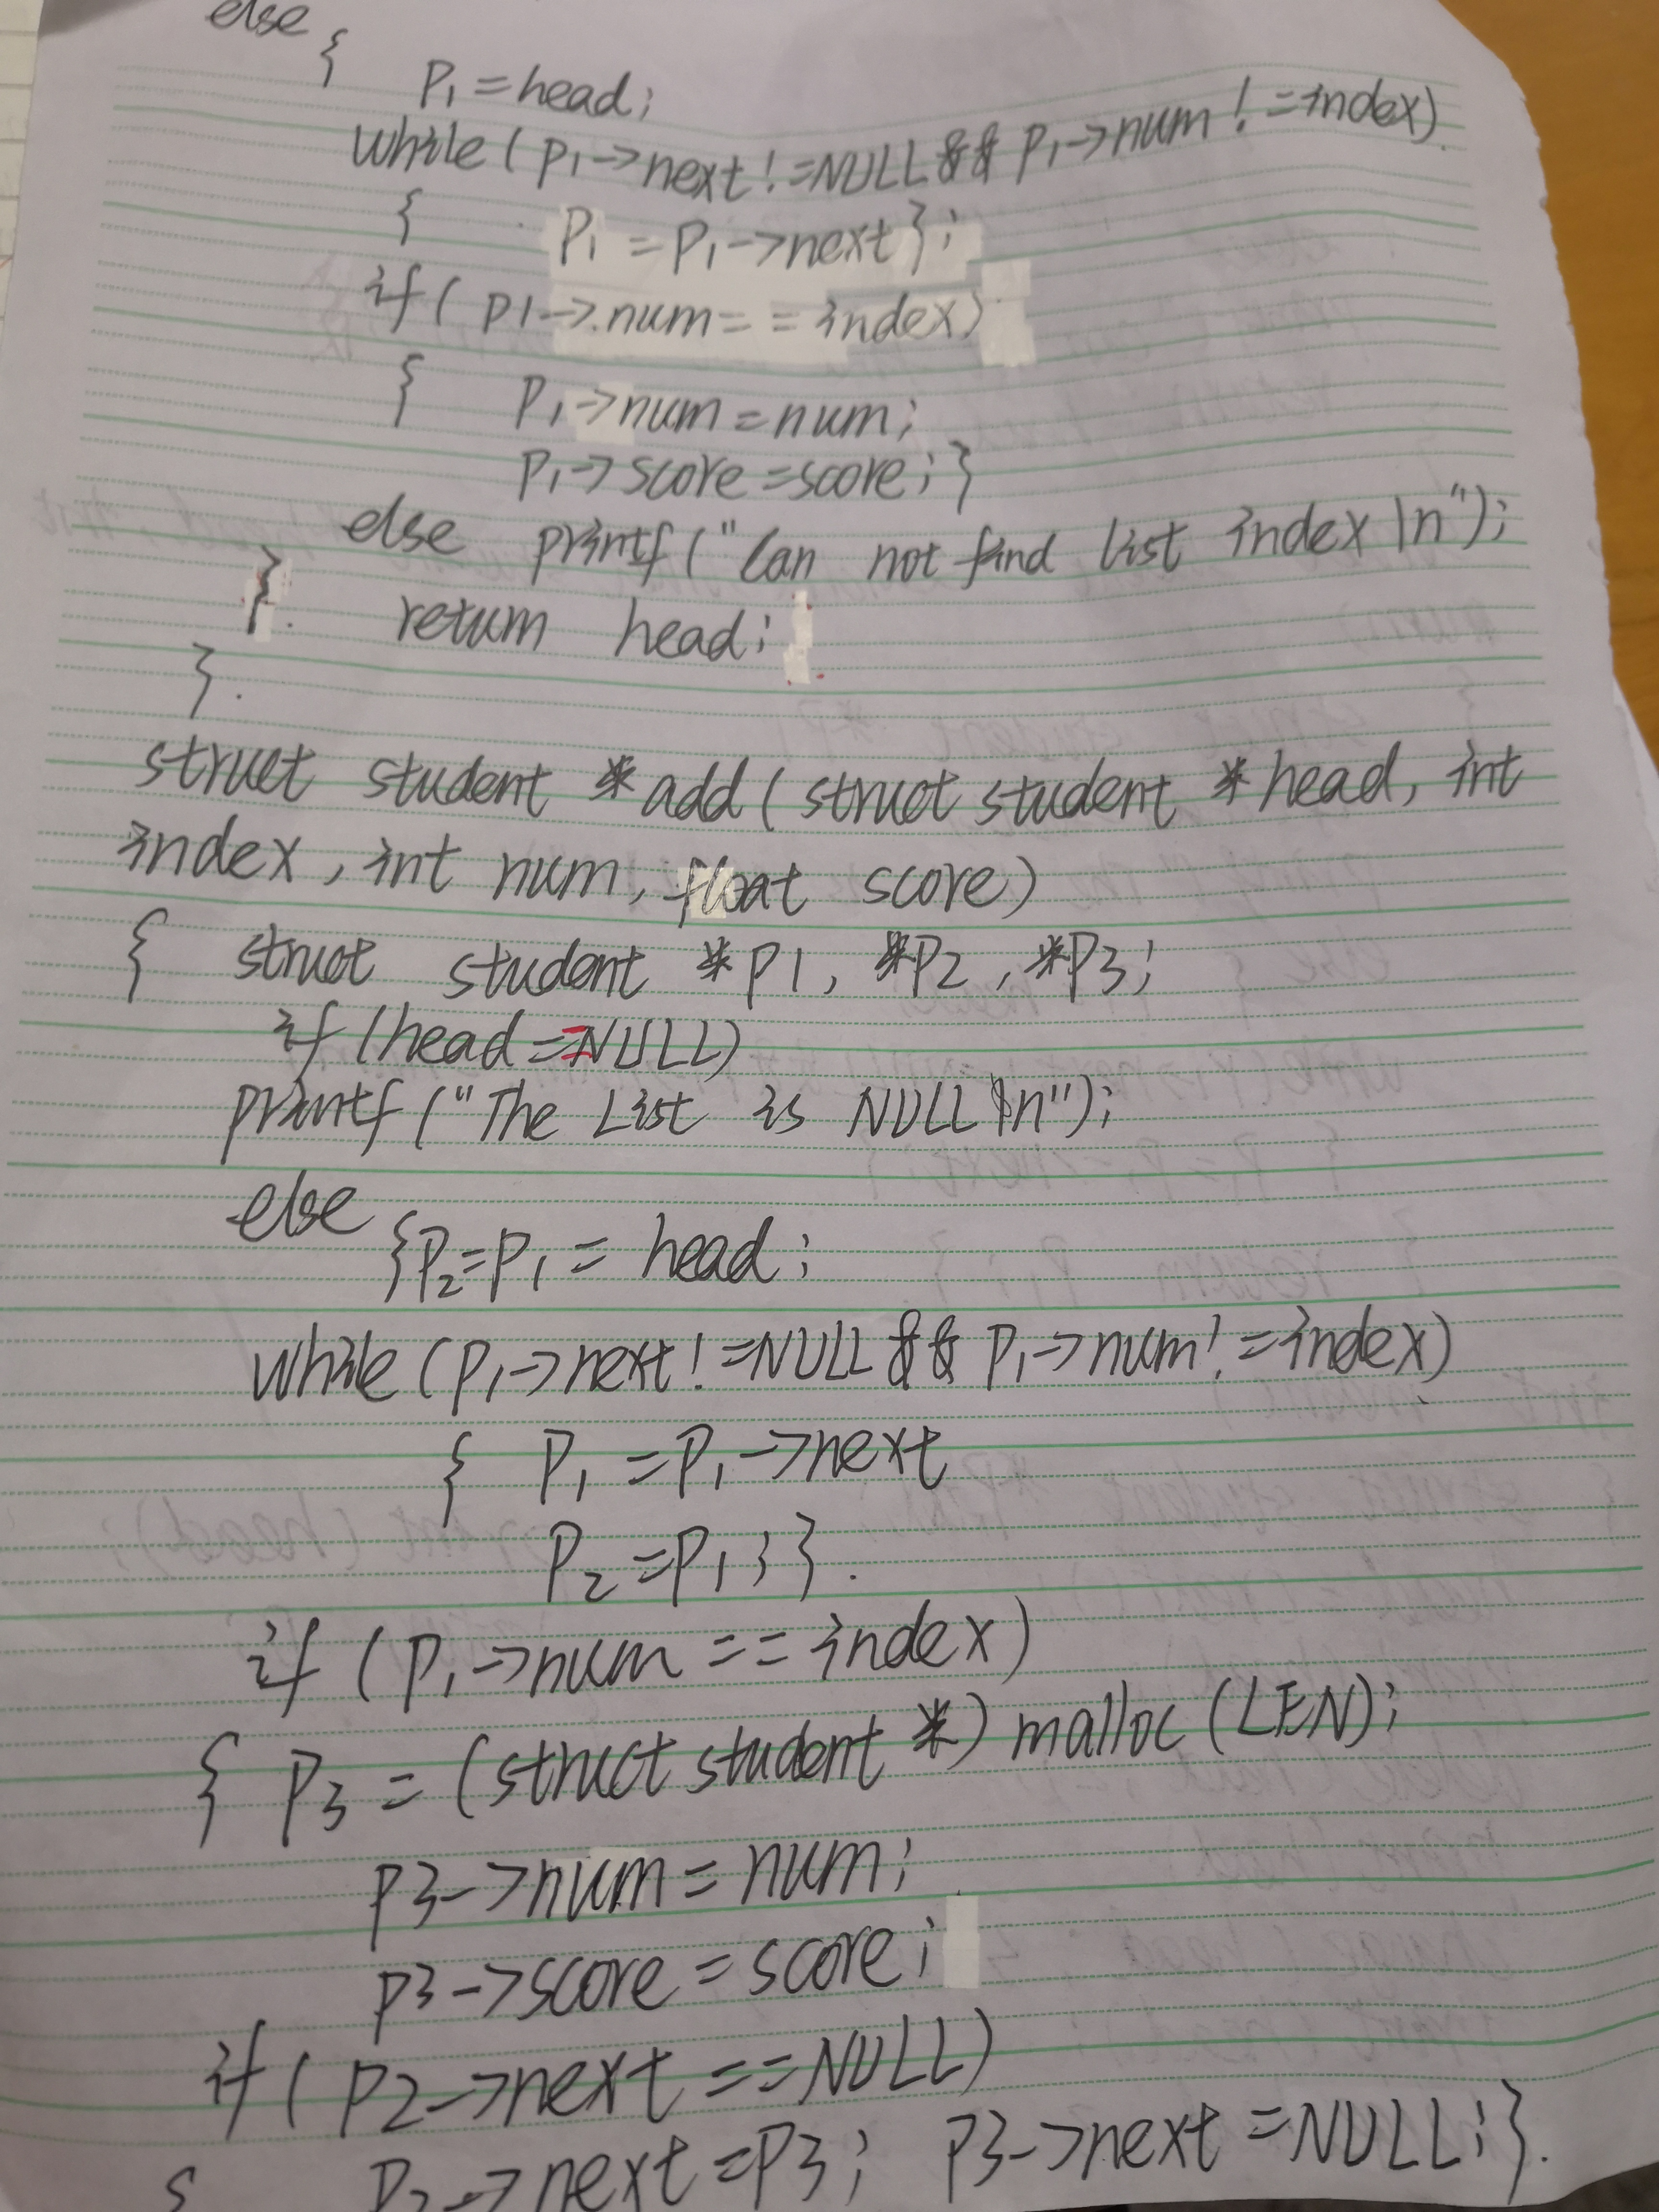 else {
P1 = head;
while ( p1->next != NULL && p1->num != index)
{ P1 = P1->next };
if ( p1->num == index)
{ P1->num = num;
P1->score = score; }
else printf ("Can not find list index \n");
} return head;
}
struct student *add ( struct student *head, int
index, int num, float score)
{ struct student *p1, *P2, *P3;
if (head == NULL)
printf ("The List is NULL \n");
else {P2=P1 = head;
while (P1->next != NULL && P1->num != index)
{ P1 = P1->next
P2 = P1; }
if (P1->num == index)
{ P3 = (struct student *) malloc (LEN);
P3->num = num;
P3->score = score;
if ( P2->next == NULL)
{ P2->next = P3; P3->next = NULL; }